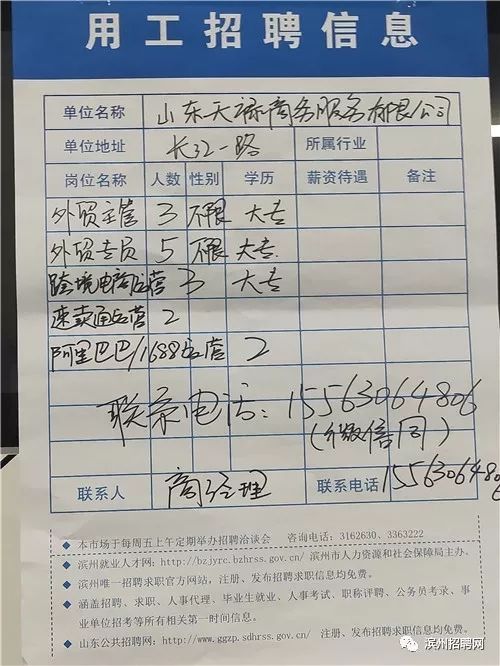 用工招聘信息
单位名称 山东天禄商务服务有限公司
单位地址 长江一路 所属行业
岗位名称 人数 性别 学历 薪资待遇 备注
外贸主管 3 不限 大专
外贸专员 5 不限 大专
跨境电商运营 3 大专
速卖通运营 2
阿里巴巴/1688运营 2
联系电话:15563064806
(微信同)
联系人 商经理 联系电话 15563064806
本市场于每周五上午定期举办招聘洽谈会 咨询电话:3162630、3363222
滨州就业人才网:http://bzjyrc.bzhrss.gov.cn/ 滨州市人力资源和社会保障局主办。
滨州唯一招聘求职官方网站,注册、发布招聘求职信息均免费。
涵盖招聘、求职、人事代理、毕业生就业、人事考试、职称评聘、公务员考录、事
业单位招考等所有相关第一时间信息。
山东公共招聘网:http://www.ggzp.sdhrss.gov.cn/ 注册、发布招聘求职信息免费。
滨州招聘网